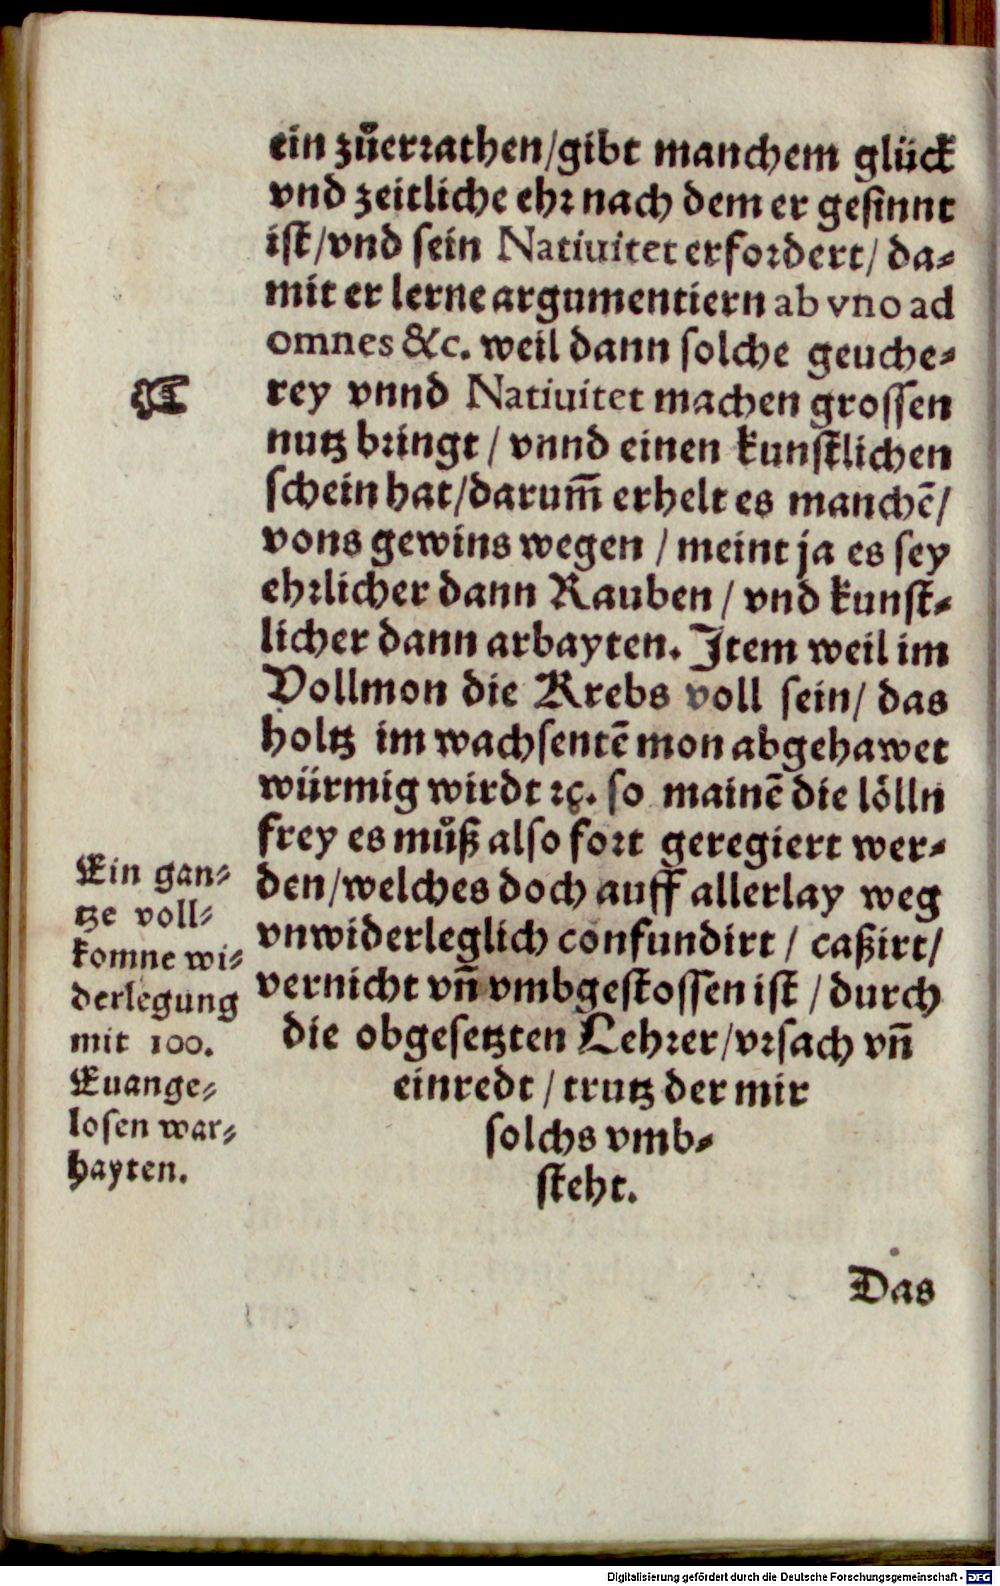 ein zůerꝛathen/gibt manchem glück
vnd zeitliche ehꝛ nach dem er gesinnt
ist/vnd sein Natiuitet erfoꝛdert/ da⸗
mit er lerne argumentiern ab vno ad
omnes &c. weil dann solche geuche⸗
rey vnnd Natiuitet machen grossen
nutz bꝛingt / vnnd einen kunstlichen
schein hat/darum̃ erhelt es manchẽ/
vons gewins wegen / meint ja es sey
ehꝛlicher dann Rauben / vnd kunst⸗
licher dann arbayten. Item weil im
Vollmon die Krebs voll sein/ das
holtz im wachsentẽ mon abgehawet
würmig wirdt ꝛc. so mainẽ die lölln
frey es můß also foꝛt geregiert wer⸗
den/welches doch auff allerlay weg
vnwiderleglich confundirt / caßirt/
vernicht vñ vmbgestossen ist / durch
die obgesetzten Lehꝛer/vꝛsach vñ
einredt / trutz der mir
solchs vmb⸗
steht.
Ein gan⸗
tze voll⸗
komne wi⸗
derlegung
mit 100.
Euange⸗
losen war⸗
hayten.
Das
Digitalisierung gefördert durch die Deutsche Forschungsgemeinschaft - DFG